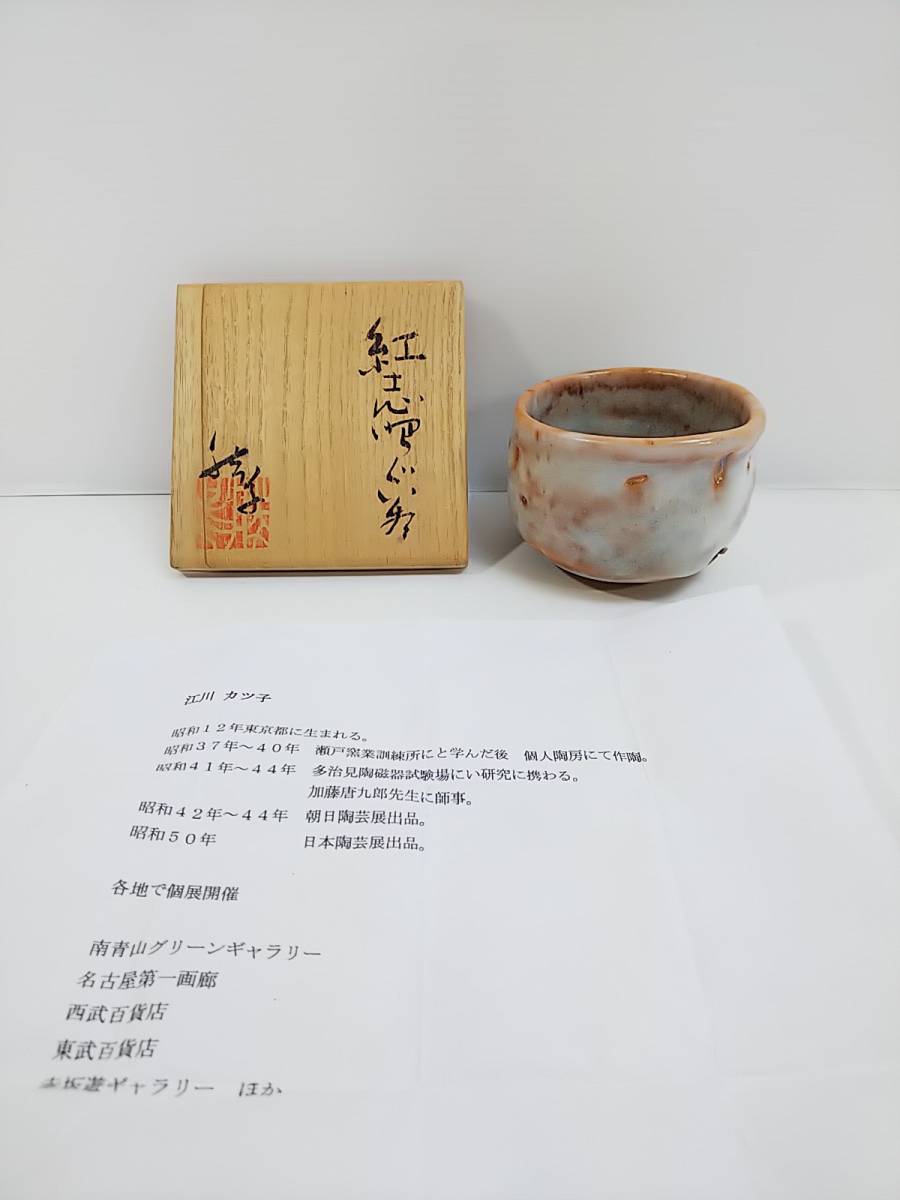 紅志野ぐい呑
江川 カツ子
昭和12年東京都に生まれる。
昭和37年～40年　瀬戸窯業訓練所にと学んだ後　個人陶房にて作陶。
昭和41年～44年　多治見陶磁器試験場にい研究に携わる。
加藤唐九郎先生に師事。
昭和42年～44年　朝日陶芸展出品。
昭和50年　日本陶芸展出品。
各地で個展開催
南青山グリーンギャラリー
名古屋第一画廊
西武百貨店
東武百貨店
赤坂遊ギャラリー　ほか